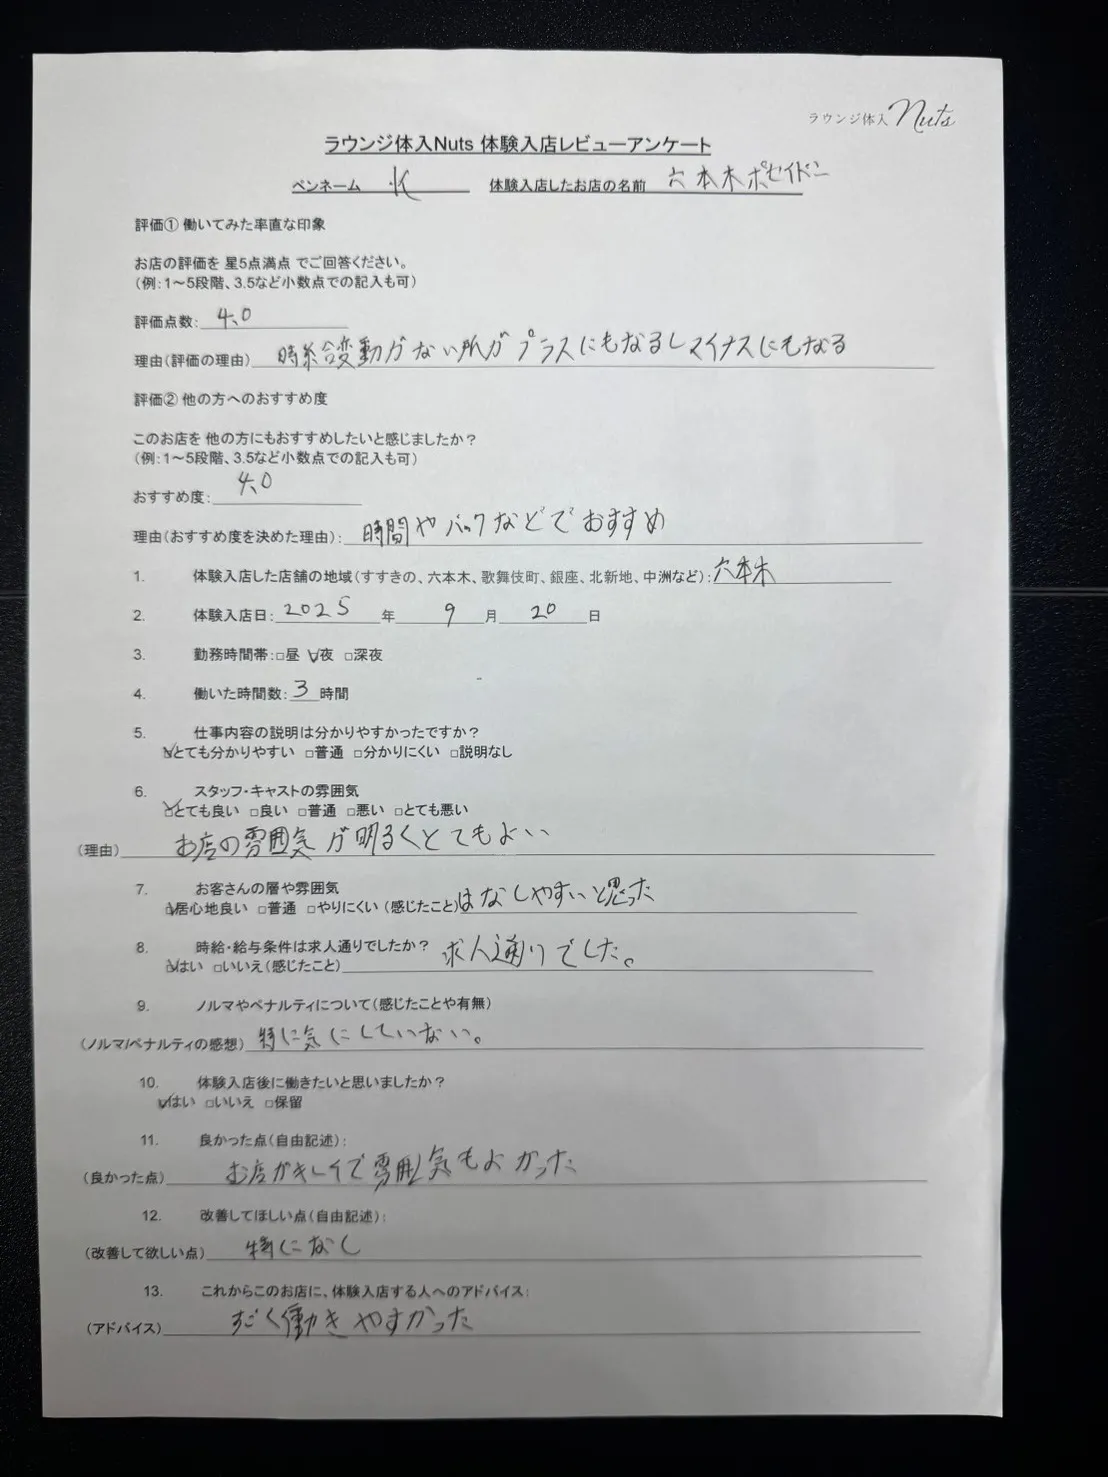 ラウンジ体入 Nuts
ラウンジ体入Nuts 体験入店レビューアンケート
ペンネーム K 体験入店したお店の名前 六本木ポセイドン
評価① 働いてみた率直な印象
お店の評価を 星5点満点 でご回答ください。
(例:1～5段階、3.5など小数点での記入も可)
評価点数: 4.0
理由(評価の理由) 時給変動がない所がプラスにもなるしマイナスにもなる
評価② 他の方へのおすすめ度
このお店を 他の方にもおすすめしたいと感じましたか?
(例:1～5段階、3.5など小数点での記入も可)
おすすめ度: 4.0
理由(おすすめ度を決めた理由): 時間やバックなどでおすすめ
1. 体験入店した店舗の地域(すすきの、六本木、歌舞伎町、銀座、北新地、中洲など): 六本木
2. 体験入店日: 2025 年 9 月 20 日
3. 勤務時間帯:□昼 ☑夜 □深夜
4. 働いた時間数: 3 時間
5. 仕事内容の説明は分かりやすかったですか?
☑とても分かりやすい □普通 □分かりにくい □説明なし
6. スタッフ・キャストの雰囲気
☑とても良い □良い □普通 □悪い □とても悪い
(理由) お店の雰囲気が明るくとてもよい
7. お客さんの層や雰囲気
☑居心地良い □普通 □やりにくい (感じたこと) はなしやすいと思った
8. 時給・給与条件は求人通りでしたか?
☑はい □いいえ(感じたこと) 求人通りでした。
9. ノルマやペナルティについて(感じたことや有無)
(ノルマ/ペナルティの感想) 特に気にしていない。
10. 体験入店後に働きたいと思いましたか?
☑はい □いいえ □保留
11. 良かった点(自由記述):
(良かった点) お店がキレイで雰囲気もよかった
12. 改善してほしい点(自由記述):
(改善して欲しい点) 特になし
13. これからこのお店に、体験入店する人へのアドバイス:
(アドバイス) すごく働きやすかった